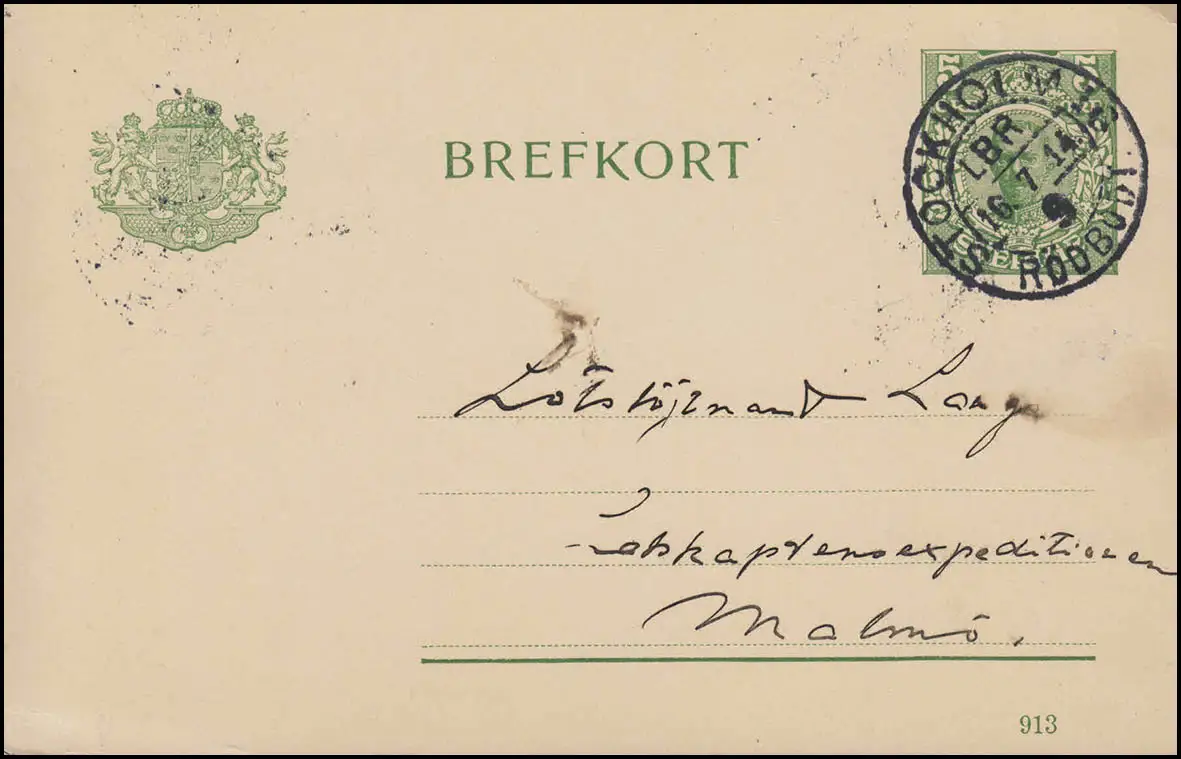 BREFKORT
5 5
STOCKHOLM 16
LBR
16 7 14
9
RÖDBODT.
SVERIGE
Lotslöjtnant Lange
Lotskaptensexpeditionen
Malmö.
913